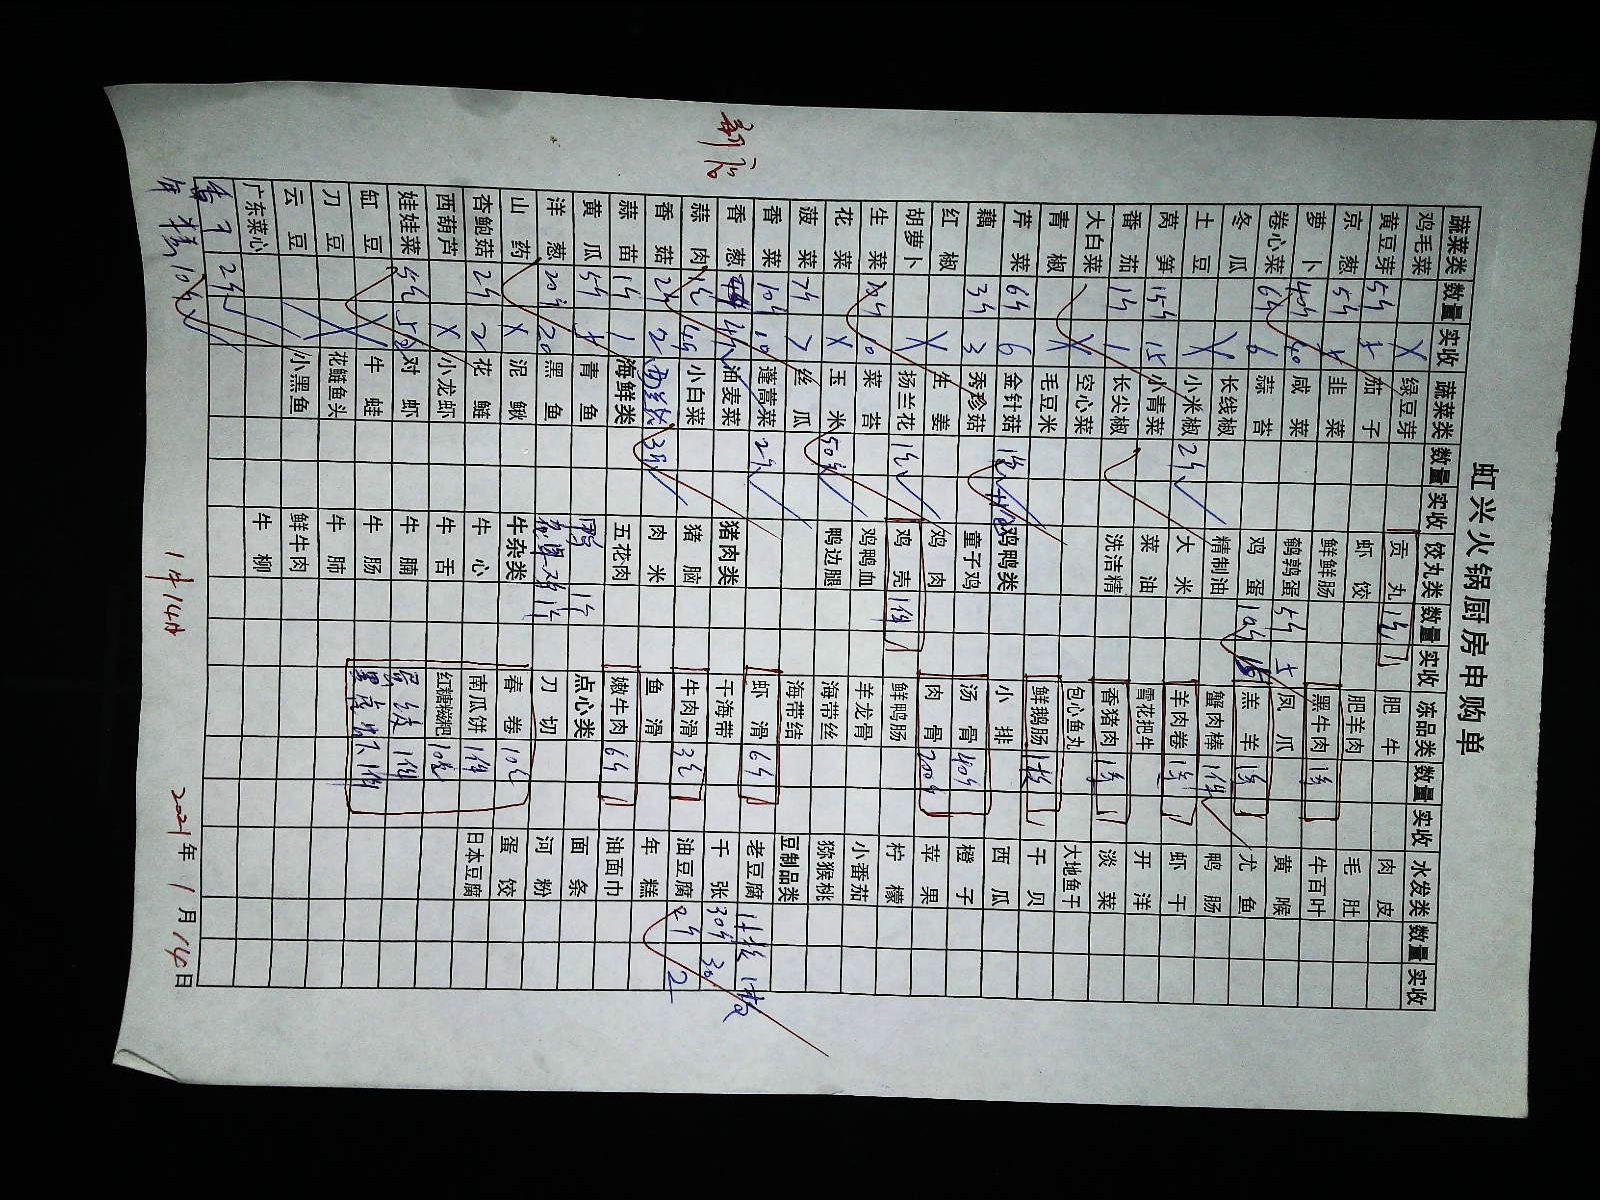 虹兴火锅厨房申购单
新店
蔬菜类 数量 实收 蔬菜类 数量 实收 饺丸类 数量 实收 冻品类 数量 实收 水发类 数量 实收
鸡毛菜 X 绿豆芽 贡丸 肥牛 肉皮
黄豆芽 5斤 5 茄子 虾饺 肥羊肉 毛肚
京葱 5斤 韭菜 鲜鲜肠 黑牛肉 牛百叶
萝卜 40斤 40 咸菜 鹌鹑蛋 5斤 5 凤爪 黄喉
卷心菜 6斤 6 蒜苔 鸡蛋 羔羊 尤鱼
冬瓜 长线椒 精制油 蟹肉棒 1件 鸭肠
土豆 X 小米椒 2斤 大米 羊肉卷 虾干
莴笋 15斤 15 小青菜 菜油 雪花把牛 开洋
番茄 1斤 1 长尖椒 洗洁精 香猪肉 淡菜
大白菜 空心菜 包心鱼丸 大地鱼干
青椒 X 毛豆米 鲜鹅肠 干贝
芹菜 6斤 6 金针菇 鸡鸭类 小排 西瓜
藕 3斤 3 秀珍菇 童子鸡 汤骨 40斤 橙子
红椒 生姜 鸡肉 肉骨 200斤 苹果
胡萝卜 X 扬兰花 鸡壳 1件 鲜鸭肠 柠檬
生菜 10 菜苔 鸡鸭血 羊龙骨 小番茄
花菜 X 玉米 鸭边腿 海带丝 猕猴桃
菠菜 7斤 7 丝瓜 海带结 豆制品类
香菜 10斤 10 蓬蒿菜 2斤 干海带 老豆腐 1板 1板
香葱 油麦菜 猪肉类 虾滑 6斤 千张 30斤 30
蒜肉 小白菜 猪脑 牛肉滑 油豆腐 2斤 2
香菇 2斤 2 西兰花 3斤 肉米 鱼滑 年糕
蒜苗 1斤 1 海鲜类 五花肉 嫩牛肉 6斤 油面巾
黄瓜 5斤 5 青鱼 点心类 面条
洋葱 20斤 20 黑鱼 刀切 河粉
山药 X 泥鳅 牛杂类 春卷 蛋饺
杏鲍菇 2斤 2 花鲢 牛心 南瓜饼 1件 日本豆腐
西葫芦 X 小龙虾 牛舌 红糖糍粑
娃娃菜 对虾 牛腩
缸豆 X 牛蛙 牛肠
刀豆 花鲢鱼头 牛肺
云豆 小黑鱼 鲜牛肉
广东菜心 牛柳
2斤
年糕
1月14日
2021年1月14日